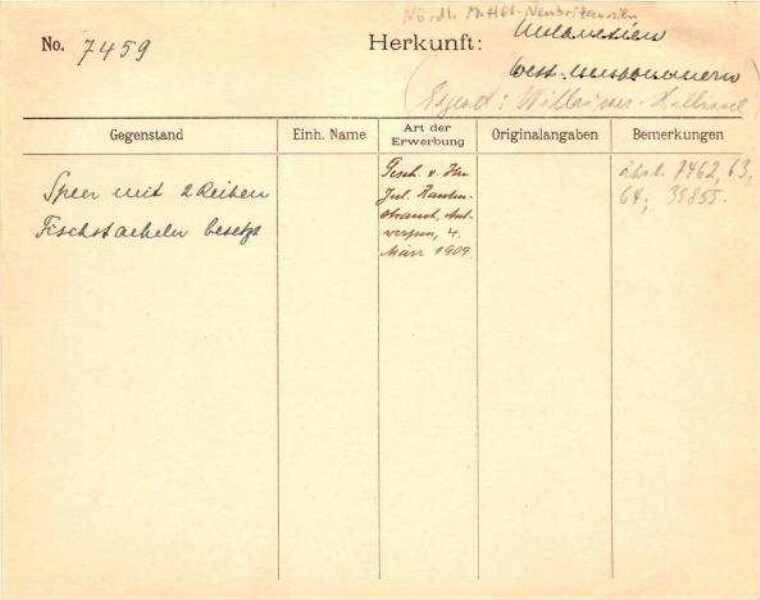 Nördl. Mittel-Neubritannien
No. 7459 Herkunft: Melanesien
West-neupommern
(Gegend: Willaumez-Halbinsel)
Gegenstand Einh. Name Art der Erwerbung Originalangaben Bemerkungen
Speer mit 2 Reihen
Fischstacheln besetzt
Gesch. v. Hn
Jul. Rauten-
strauch, Ant-
werpen, 4.
März 1909.
ähnl. 7462, 63,
64; 35855.